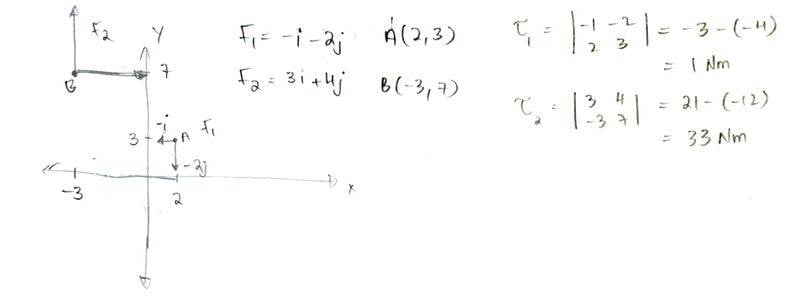 F₂
Y
B
7
3
-i
A
F₁
-2j
-3
2
x
F₁ = -i - 2j A(2,3)
F₂ = 3i + 4j B(-3,7)
τ₁ = |-1 -2| = -3 - (-4)
|2 3|
= 1 Nm
τ₂ = |3 4| = 21 - (-12)
|-3 7|
= 33 Nm